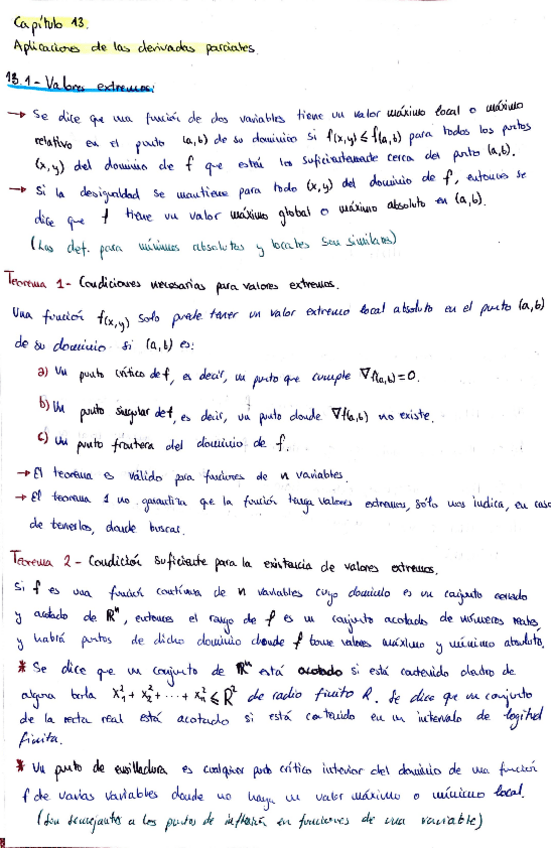 Capítulo 13.
Aplicaciones de las derivadas parciales.
13.1 - Valores extremos:
→ Se dice que una función de dos variables tiene un valor máximo local o máximo
relativo en el punto (a,b) de su dominio si f(x,y) ≤ f(a,b) para todos los puntos
(x,y) del dominio de f que están lo suficientemente cerca del punto (a,b).
→ Si la desigualdad se mantiene para todo (x,y) del dominio de f, entonces se
dice que f tiene un valor máximo global o máximo absoluto en (a,b).
(Las def. para mínimos absolutos y locales son similares)
Teorema 1 - Condiciones necesarias para valores extremos.
Una función f(x,y) solo puede tener un valor extremo local absoluto en el punto (a,b)
de su dominio si (a,b) es:
a) Un punto crítico de f, es decir, un punto que cumple ∇f(a,b) = 0.
b) Un punto singular de f, es decir, un punto donde ∇f(a,b) no existe.
c) Un punto frontera del dominio de f.
→ El teorema es válido para funciones de n variables.
→ El teorema 1 no garantiza que la función tenga valores extremos, sólo nos indica, en caso
de tenerlos, donde buscar.
Teorema 2 - Condición suficiente para la existencia de valores extremos.
Si f es una función continua de n variables cuyo dominio es un conjunto cerrado
y acotado de ℝⁿ, entonces el rango de f es un conjunto acotado de números reales,
y habrá puntos de dicho dominio donde f tome valores máximo y mínimo absoluto.
* Se dice que un conjunto de ℝⁿ está acotado si está contenido dentro de
alguna bola x₁² + x₂² + ··· + xₙ² ≤ R² de radio finito R. Se dice que un conjunto
de la recta real está acotado si está contenido en un intervalo de longitud
finita.
* Un punto de ensilladura es cualquier punto crítico interior del dominio de una función
f de varias variables donde no haya un valor máximo o mínimo local.
(Son semejantes a los puntos de inflexión en funciones de una variable)